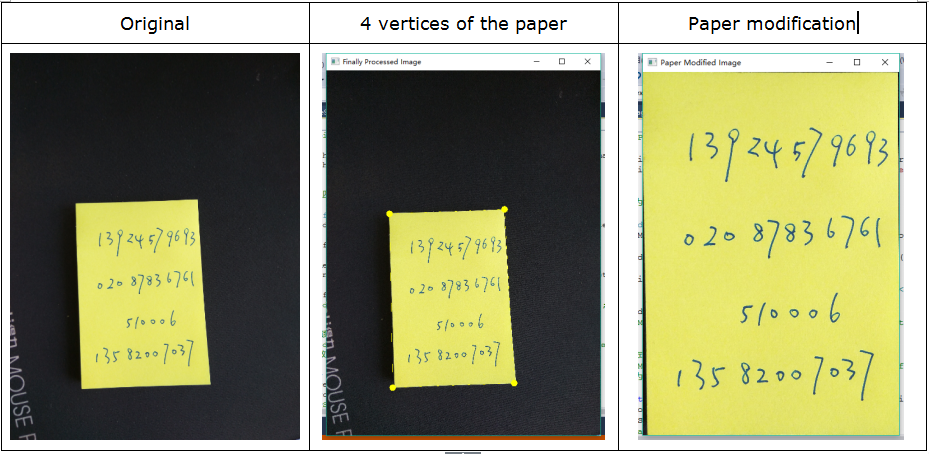 Original
4 vertices of the paper
Paper modification
13924579693
020 87836761
510006
13582007037
MOUSE P
Finally Processed Image
13924579693
020 87836761
510006
13582007037
MOUSE F
Paper Modified Image
13924579693
020 87836761
510006
13582007037